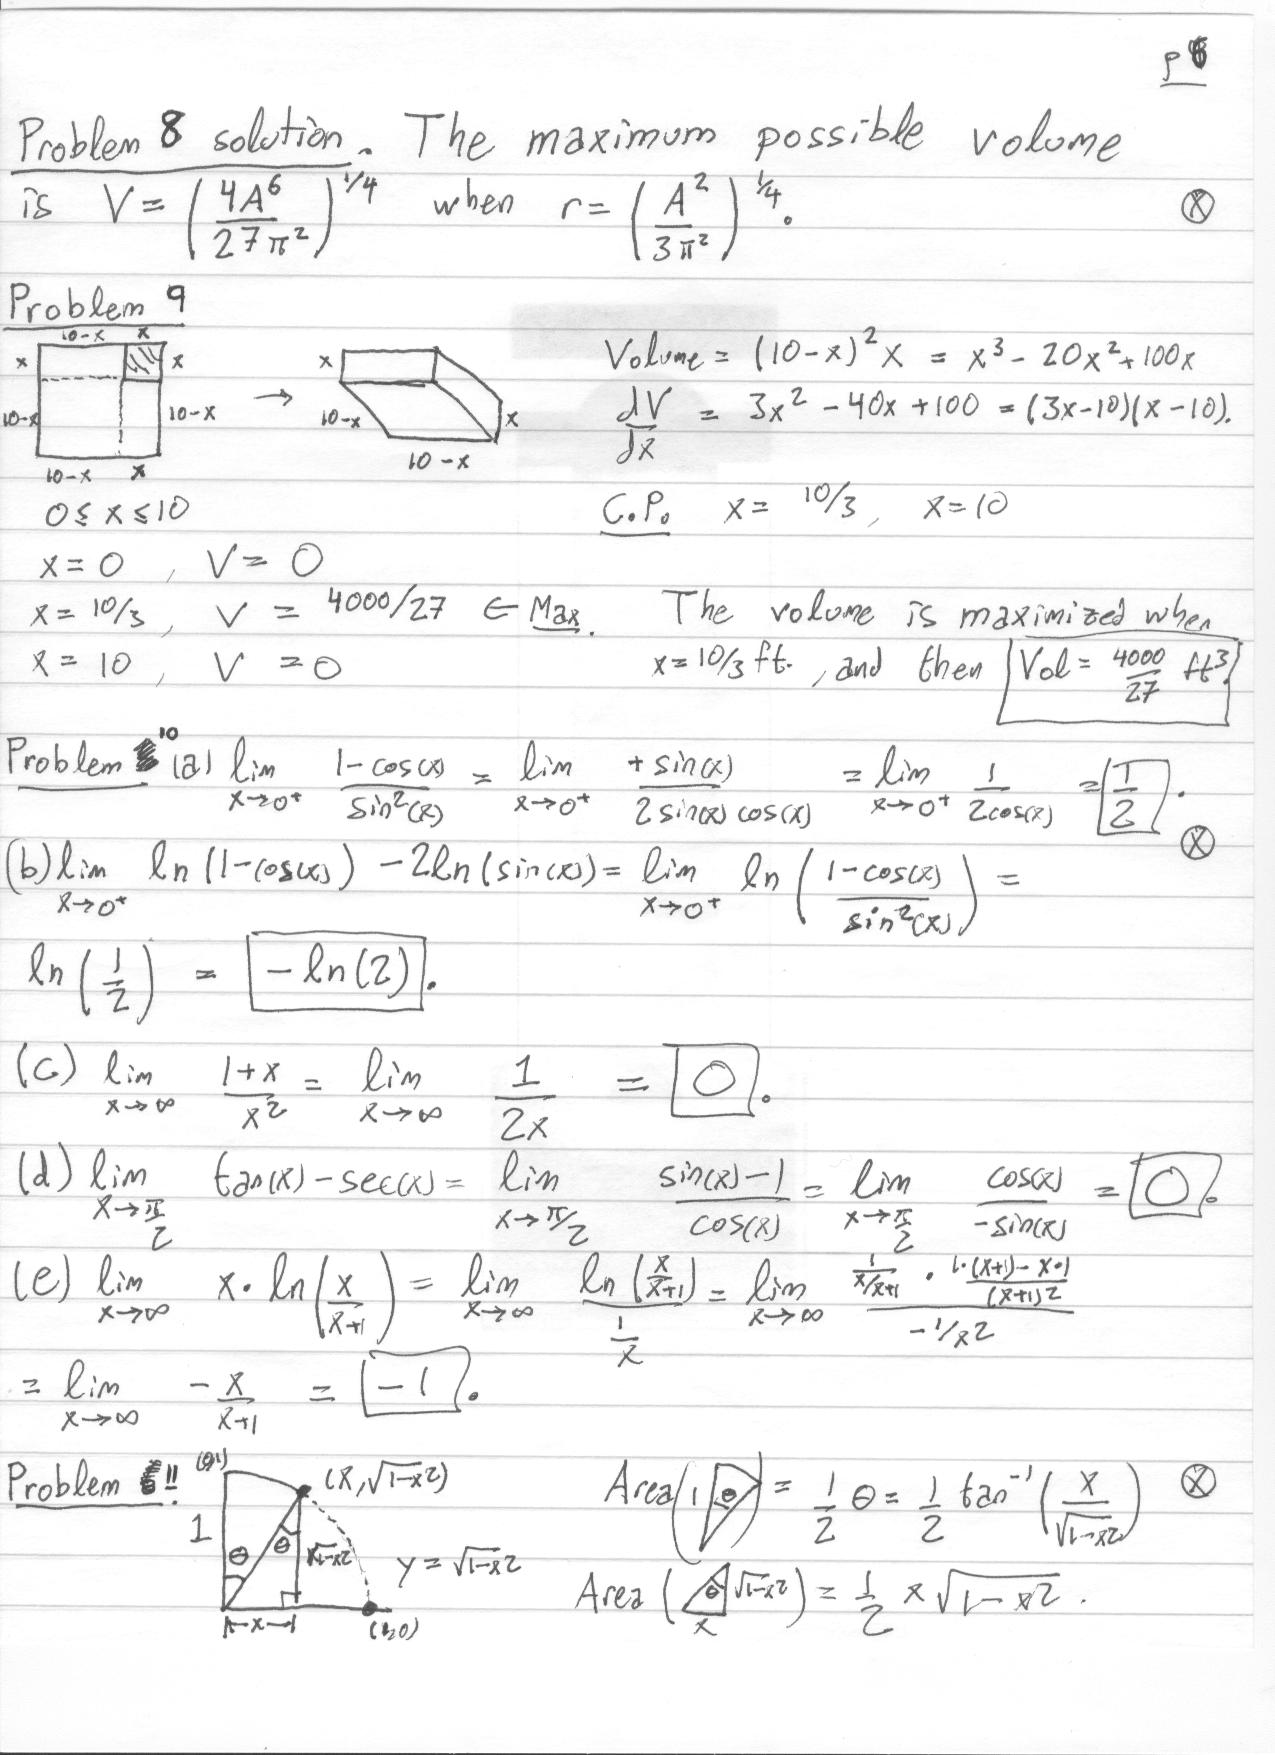 p
Problem 8 solution. The maximum possible volume
is V = (4A^6 / 27π^2)^1/4 when r = (A^2 / 3π^2)^1/4. ⊗
Problem 9
10-x x
x x
10-x 10-x
10-x x
→
x
10-x x
10-x
Volume = (10-x)^2 x = x^3 - 20x^2 + 100x
dV/dx = 3x^2 - 40x + 100 = (3x-10)(x-10).
0 ≤ x ≤ 10
C.P. x = 10/3, x = 10
x = 0, V = 0
x = 10/3, V = 4000/27 ← Max.
x = 10, V = 0
The volume is maximized when
x = 10/3 ft., and then Vol = 4000/27 ft^3.
Problem 10 (a) lim x→0+ (1-cos(x))/sin^2(x) = lim x→0+ +sin(x)/(2 sin(x) cos(x)) = lim x→0+ 1/(2cos(x)) = 1/2. ⊗
(b) lim x→0+ ln(1-cos(x)) - 2ln(sin(x)) = lim x→0+ ln((1-cos(x))/sin^2(x)) =
ln(1/2) = -ln(2).
(c) lim x→∞ (1+x)/x^2 = lim x→∞ 1/2x = 0.
(d) lim x→π/2 tan(x) - sec(x) = lim x→π/2 (sin(x)-1)/cos(x) = lim x→π/2 cos(x)/-sin(x) = 0.
(e) lim x→∞ x·ln(x/x+1) = lim x→∞ ln(x/x+1)/(1/x) = lim x→∞ (1/(x/x+1) · (1·(x+1)-x·1)/(x+1)^2)/(-1/x^2)
= lim x→∞ -x/x+1 = -1.
Problem 11.
(0,1)
(x, √1-x^2)
1 θ θ √1-x^2
y = √1-x^2
x
(1,0)
Area(1 θ) = 1/2 θ = 1/2 tan^-1(x/√1-x^2) ⊗
Area(θ √1-x^2 x) = 1/2 x √1-x^2.